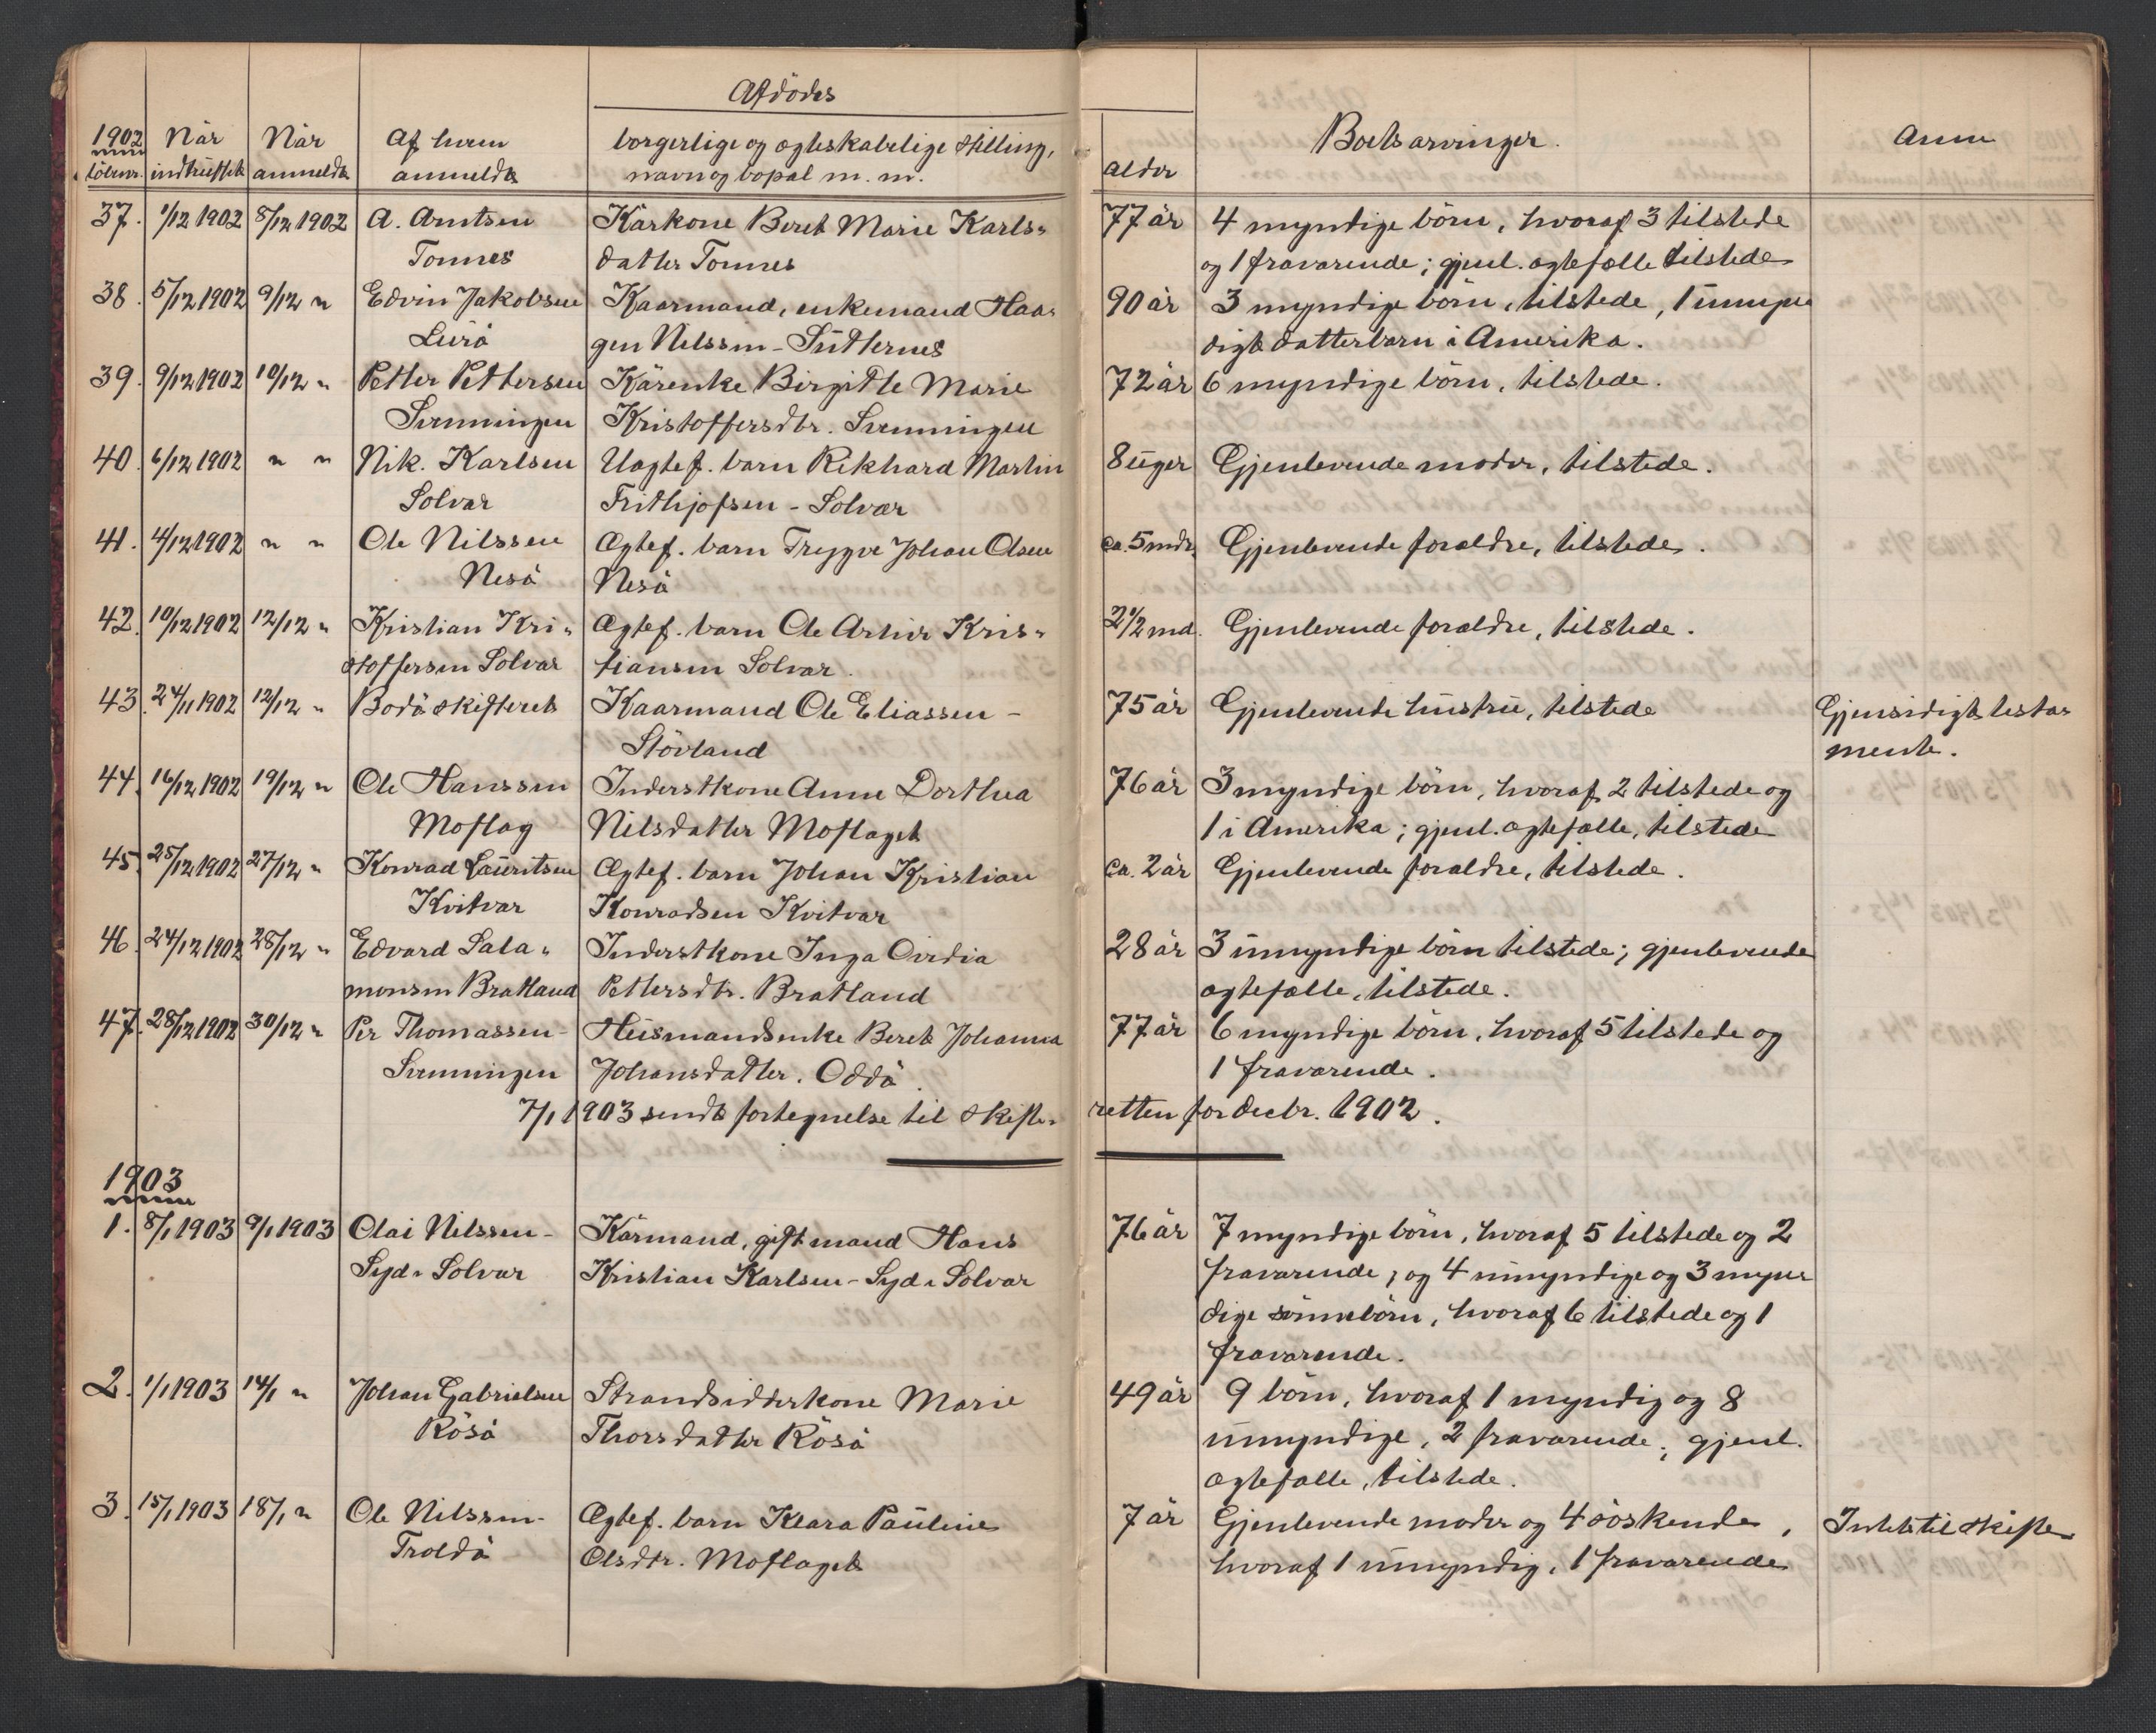 Afdödes
1902 Når Når Af hvem borgerlige og ægteskabelige stilling, Boets arvinger. Anm
löbenr. indtruffet anmeldt anmeldt navn og bopæl m. m. alder
37. 1/12 1902 8/12 1902 A. Arntsen Kårkone Beret Marie Karls- 77 år 4 myndige börn, hvoraf 3 tilstede
Tonnes datter Tonnes og 1 fraværende; gjenl. ægtefælle tilstede
38. 5/12 1902 9/12 " Edvin Jakobsen Kaarmand, enkemand Haa- 90 år 3 myndige börn, tilstede, 1 umyn-
Lurö gen Nilssen - Sütternes digt datterbarn i Amerika.
39. 9/12 1902 10/12 " Petter Pettersen Kårenke Birgitte Marie 72 år 6 myndige börn, tilstede.
Svenningen Kristoffersdtr. Svenningen
40. 6/12 1902 " " Nik. Karlsen Uægtef. barn Rikhard Martin 8 üger Gjenlevende moder, tilstede.
Solvær Frithjofsen - Solvær
41. 4/12 1902 " " Ole Nilssen Ægtef. barn Trygve Johan Olsen ca. 5 mdr. Gjenlevende forældre, tilstede.
Nesö Nesö
42. 10/12 1902 12/12 " Kristian Kri- Ægtef. barn Ole Artur Kris- 2 1/2 md. Gjenlevende forældre, tilstede.
stoffersen Solvær tiansen Solvær.
43. 24/11 1902 12/12 " Bodö skifteret Kaarmand Ole Eliassen - 75 år Gjenlevende hüstrü, tilstede Gjensidigt testa-
Stövland mente.
44. 16/12 1902 19/12 " Ole Hanssen Inderstkone Anne Dorthea 76 år 3 myndige börn, hvoraf 2 tilstede og
Moflag Nilsdatter Moflaget 1 i Amerika; gjenl. ægtefælle, tilstede
45. 25/12 1902 27/12 " Konrad Lauritsen Ægtef. barn Johan Kristian ca. 2 år Gjenlevende forældre, tilstede.
Kvitvær Konradsen Kvitvær
46. 24/12 1902 28/12 " Edvard Sala- Inderstkone Inga Ovidia 28 år 3 ümyndige börn tilstede; gjenlevende
monsen Bratland Pettersdtr. Bratland ægtefælle, tilstede.
47. 28/12 1902 30/12 " Per Thomassen - Hüsmandsenke Beret Johanna 77 år 6 myndige börn, hvoraf 5 tilstede og
Svenningen Johansdatter. Oddö 1 fraværende.
7/1 1903 sendt fortegnelse til skifte- retten for decbr. 1902.
1903
1. 8/1 1903 9/1 1903 Olai Nilssen - Kårmand, gift mand Hans 76 år 7 myndige börn, hvoraf 5 tilstede og 2
Syd-Solvær Kristian Karlsen - Syd-Solvær fraværende; og 4 ümyndige og 3 myn-
dige sönnebörn, hvoraf 6 tilstede og 1
fraværende.
2. 1/1 1903 14/1 " Johan Gabrielsen Strandsidderkone Marie 49 år 9 börn, hvoraf 1 myndig og 8
Rösö Thorsdatter Rösö ümyndige, 2 fraværende; gjenl.
ægtefælle, tilstede.
3. 15/1 1903 18/1 " Ole Nilssen - Ægtef. barn Klara Pauline 7 år Gjenlevende moder og 4 söskende, Intet til skifte
Troldö Olsdtr. Moflaget hvoraf 1 ümyndig, 1 fraværende